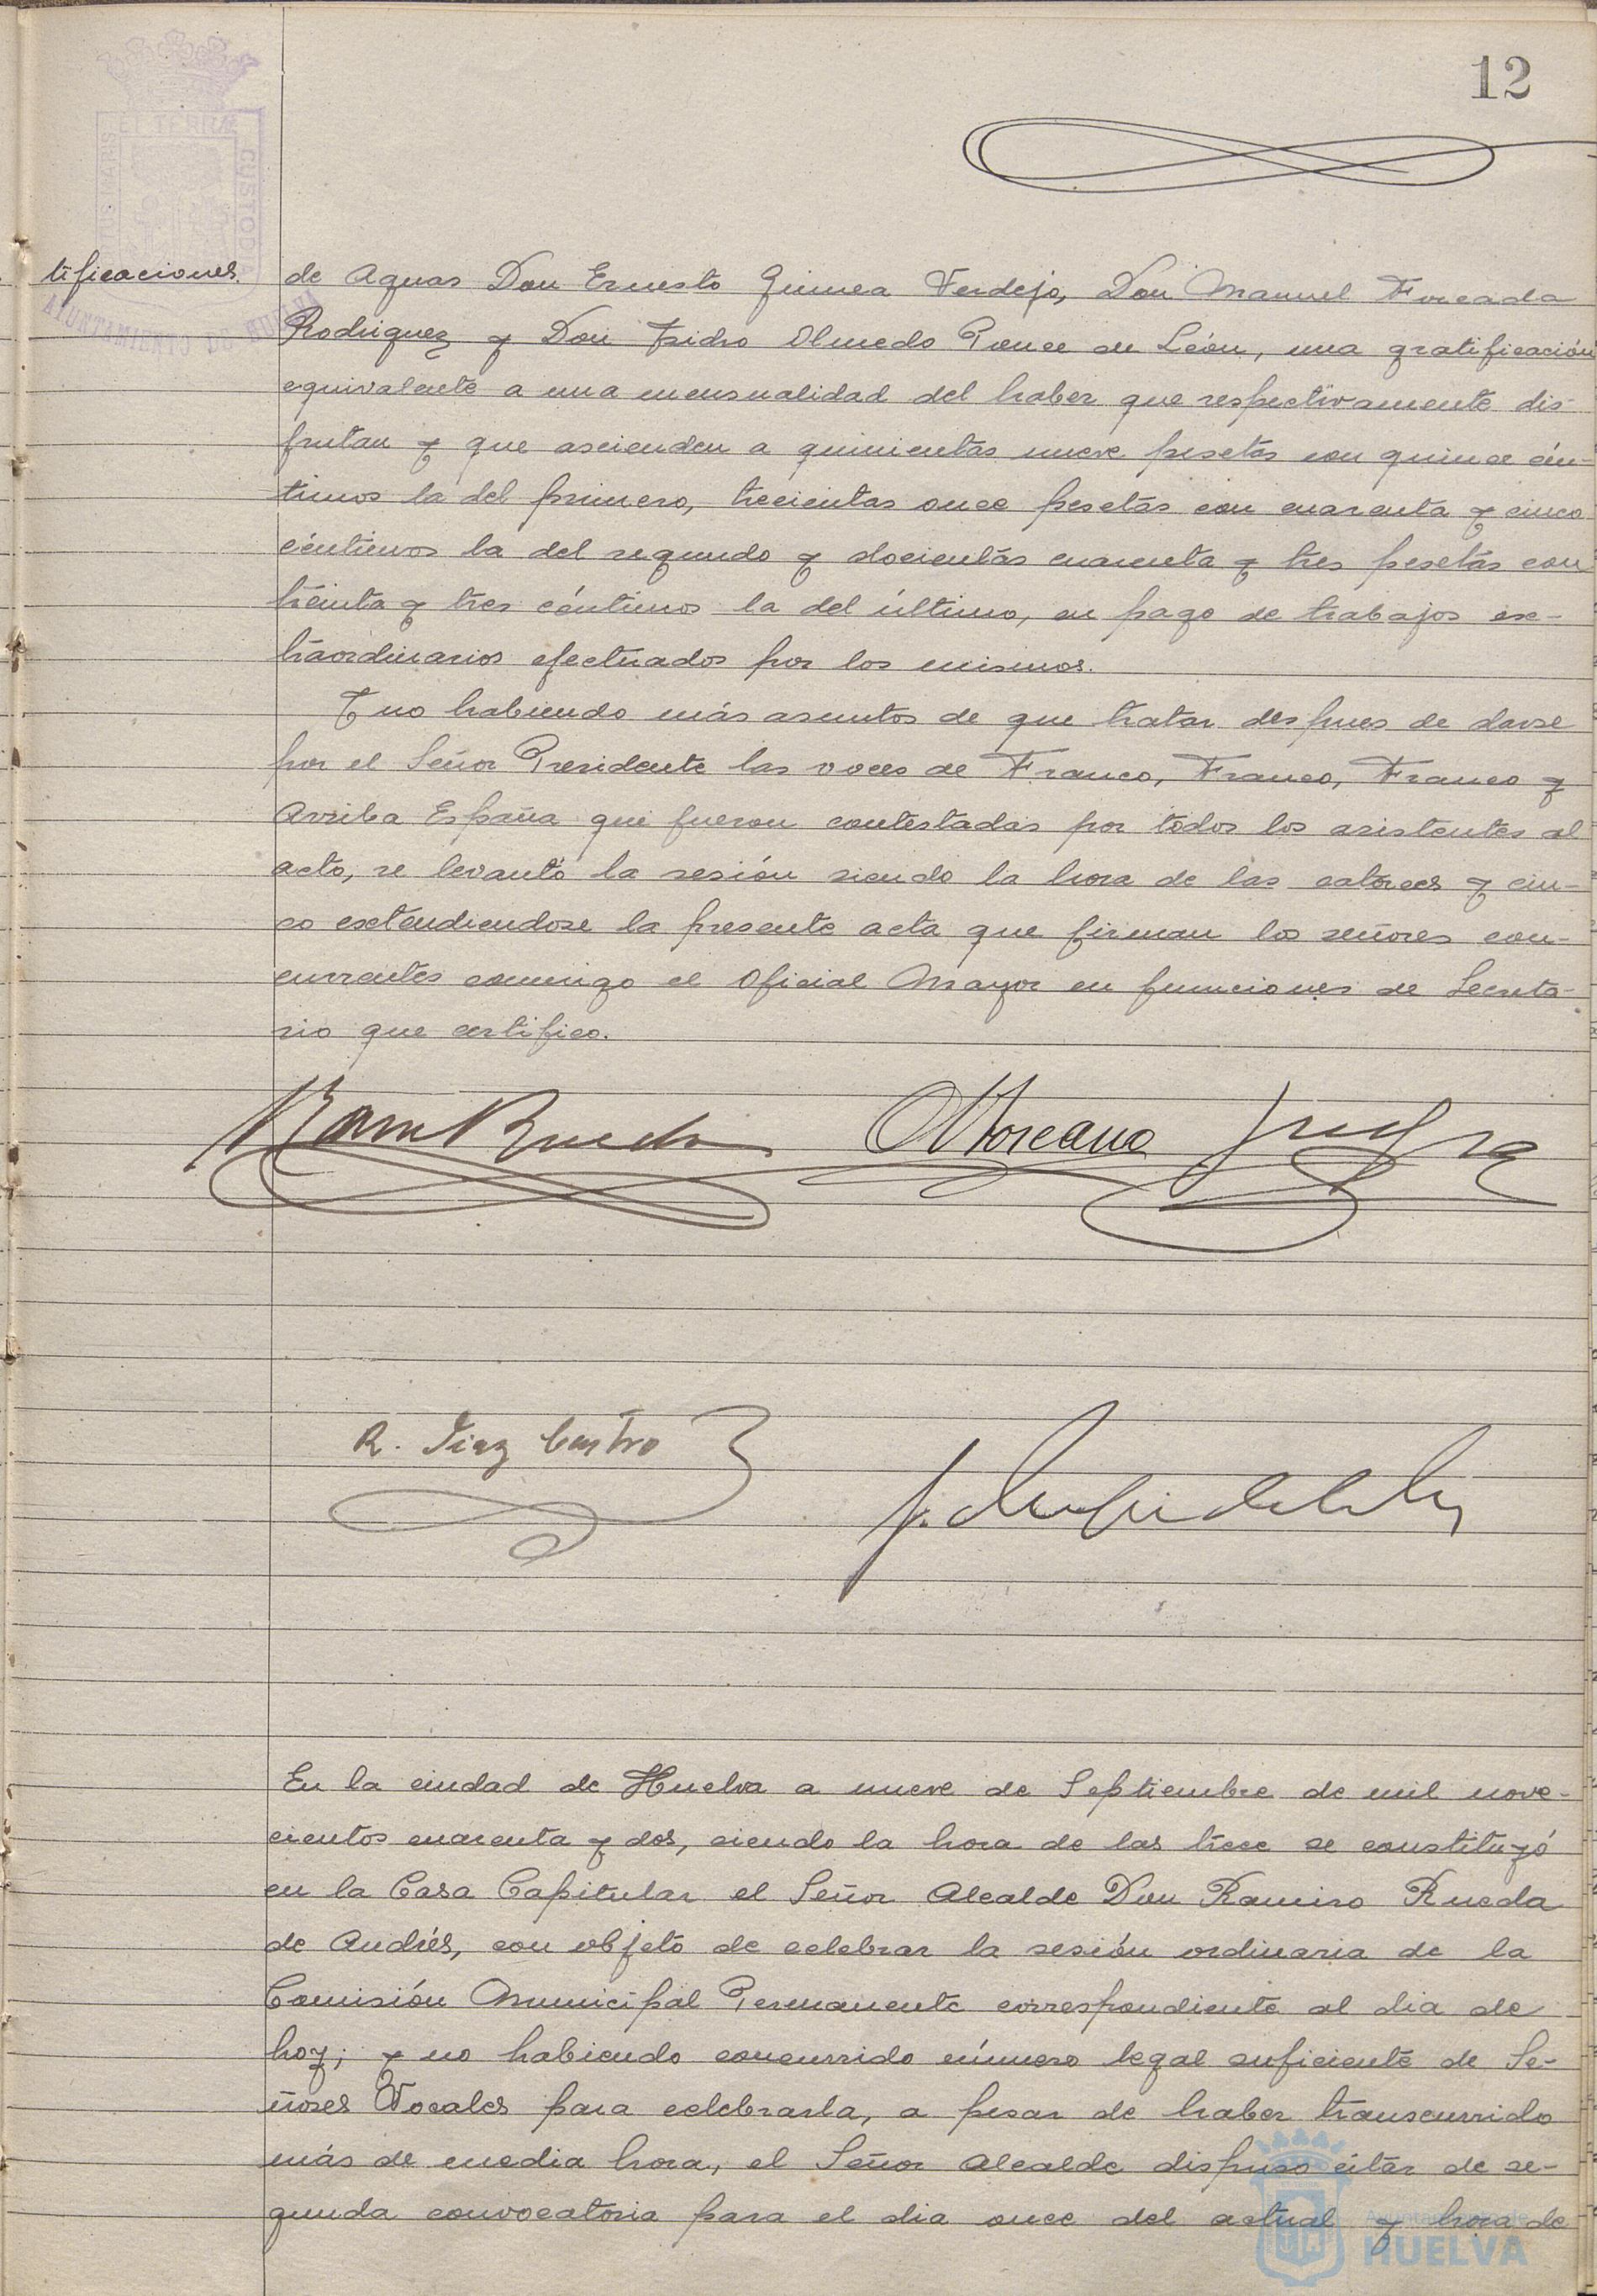 12
tificaciones.
de Aguas Don Ernesto Guinea Verdejo, Don Manuel Forcada
Rodriguez y Don Isidro Olmedo Ponce de León, una gratificación
equivalente a una mensualidad del haber que respectivamente dis-
frutan y que ascienden a quinientas nueve pesetas con quince cén-
timos la del primero, trecientas once pesetas con cuarenta y cinco
céntimos la del segundo y docientas cuarenta y tres pesetas con
treinta y tres céntimos la del último, en pago de trabajos ex-
traordinarios efectuados por los mismos.
Y no habiendo más asuntos de que tratar despues de darse
por el Señor Presidente las voces de Franco, Franco, Franco y
Arriba España que fueron contestadas por todos los asistentes al
acto, se levantó la sesión siendo la hora de las catorces y cin-
co extendiendose la presente acta que firman los señores con-
currentes conmigo el Oficial Mayor en funciones de Secreta-
rio que certifico.
R. Diaz Castro
En la ciudad de Huelva a nueve de Septiembre de mil nove-
cientos cuarenta y dos, siendo la hora de las trece se constituyó
en la Casa Capitular el Señor Alcalde Don Ramiro Rueda
de Andrés, con objeto de celebrar la sesión ordinaria de la
Comisión Municipal Permanente correspondiente al dia de
hoy; y no habiendo concurrido número legal suficiente de Se-
ñores Vocales para celebrarla, a pesar de haber transcurrido
más de media hora, el Señor Alcalde dispuso citar de se-
gunda convocatoria para el dia once del actual y hora de
AYUNTAMIENTO DE HUELVA
CUSTOD
Ayuntamiento de
HUELVA